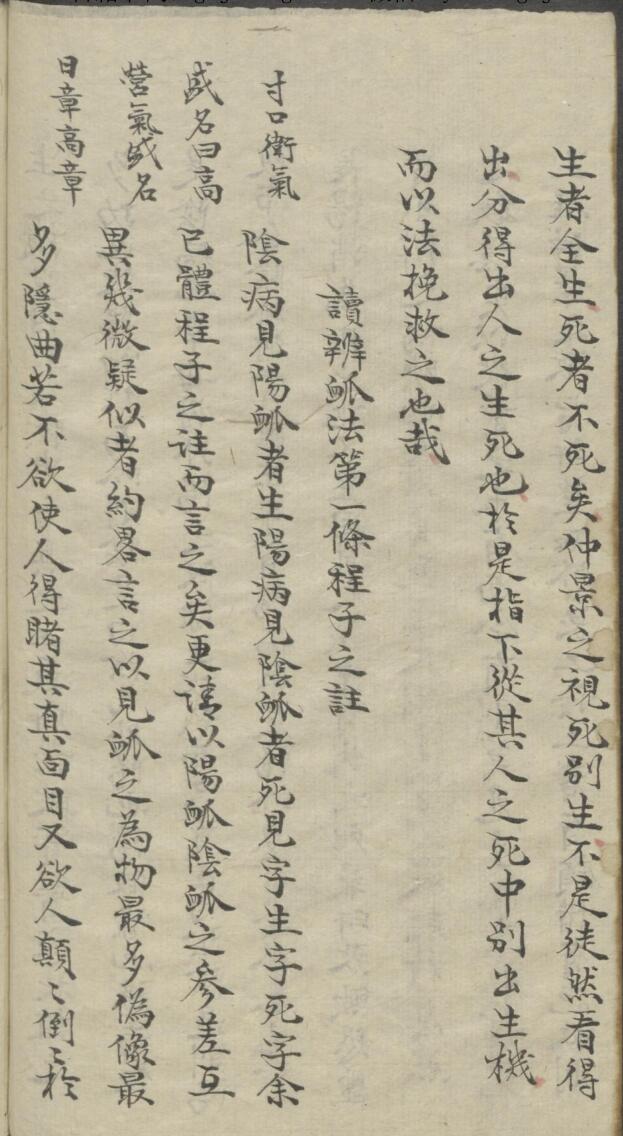 生者全生死者不死矣仲景之視死别生不是徒然看得
出分得出人之生死也於是指下從其人之死中别出生機
而以法挽救之也哉
讀辨脈法第一條程子之註
陰病見陽脈者生陽病見陰脈者死見字生字死字余
已體程子之註而言之矣更請以陽脈陰脈之參差互
異幾微疑似者約畧言之以見脈之為物最多偽像最
多隱曲若不欲使人得睹其真面目又欲人顛〻倒〻於
寸口衛氣
盛名曰高
營氣盛名
曰章高章